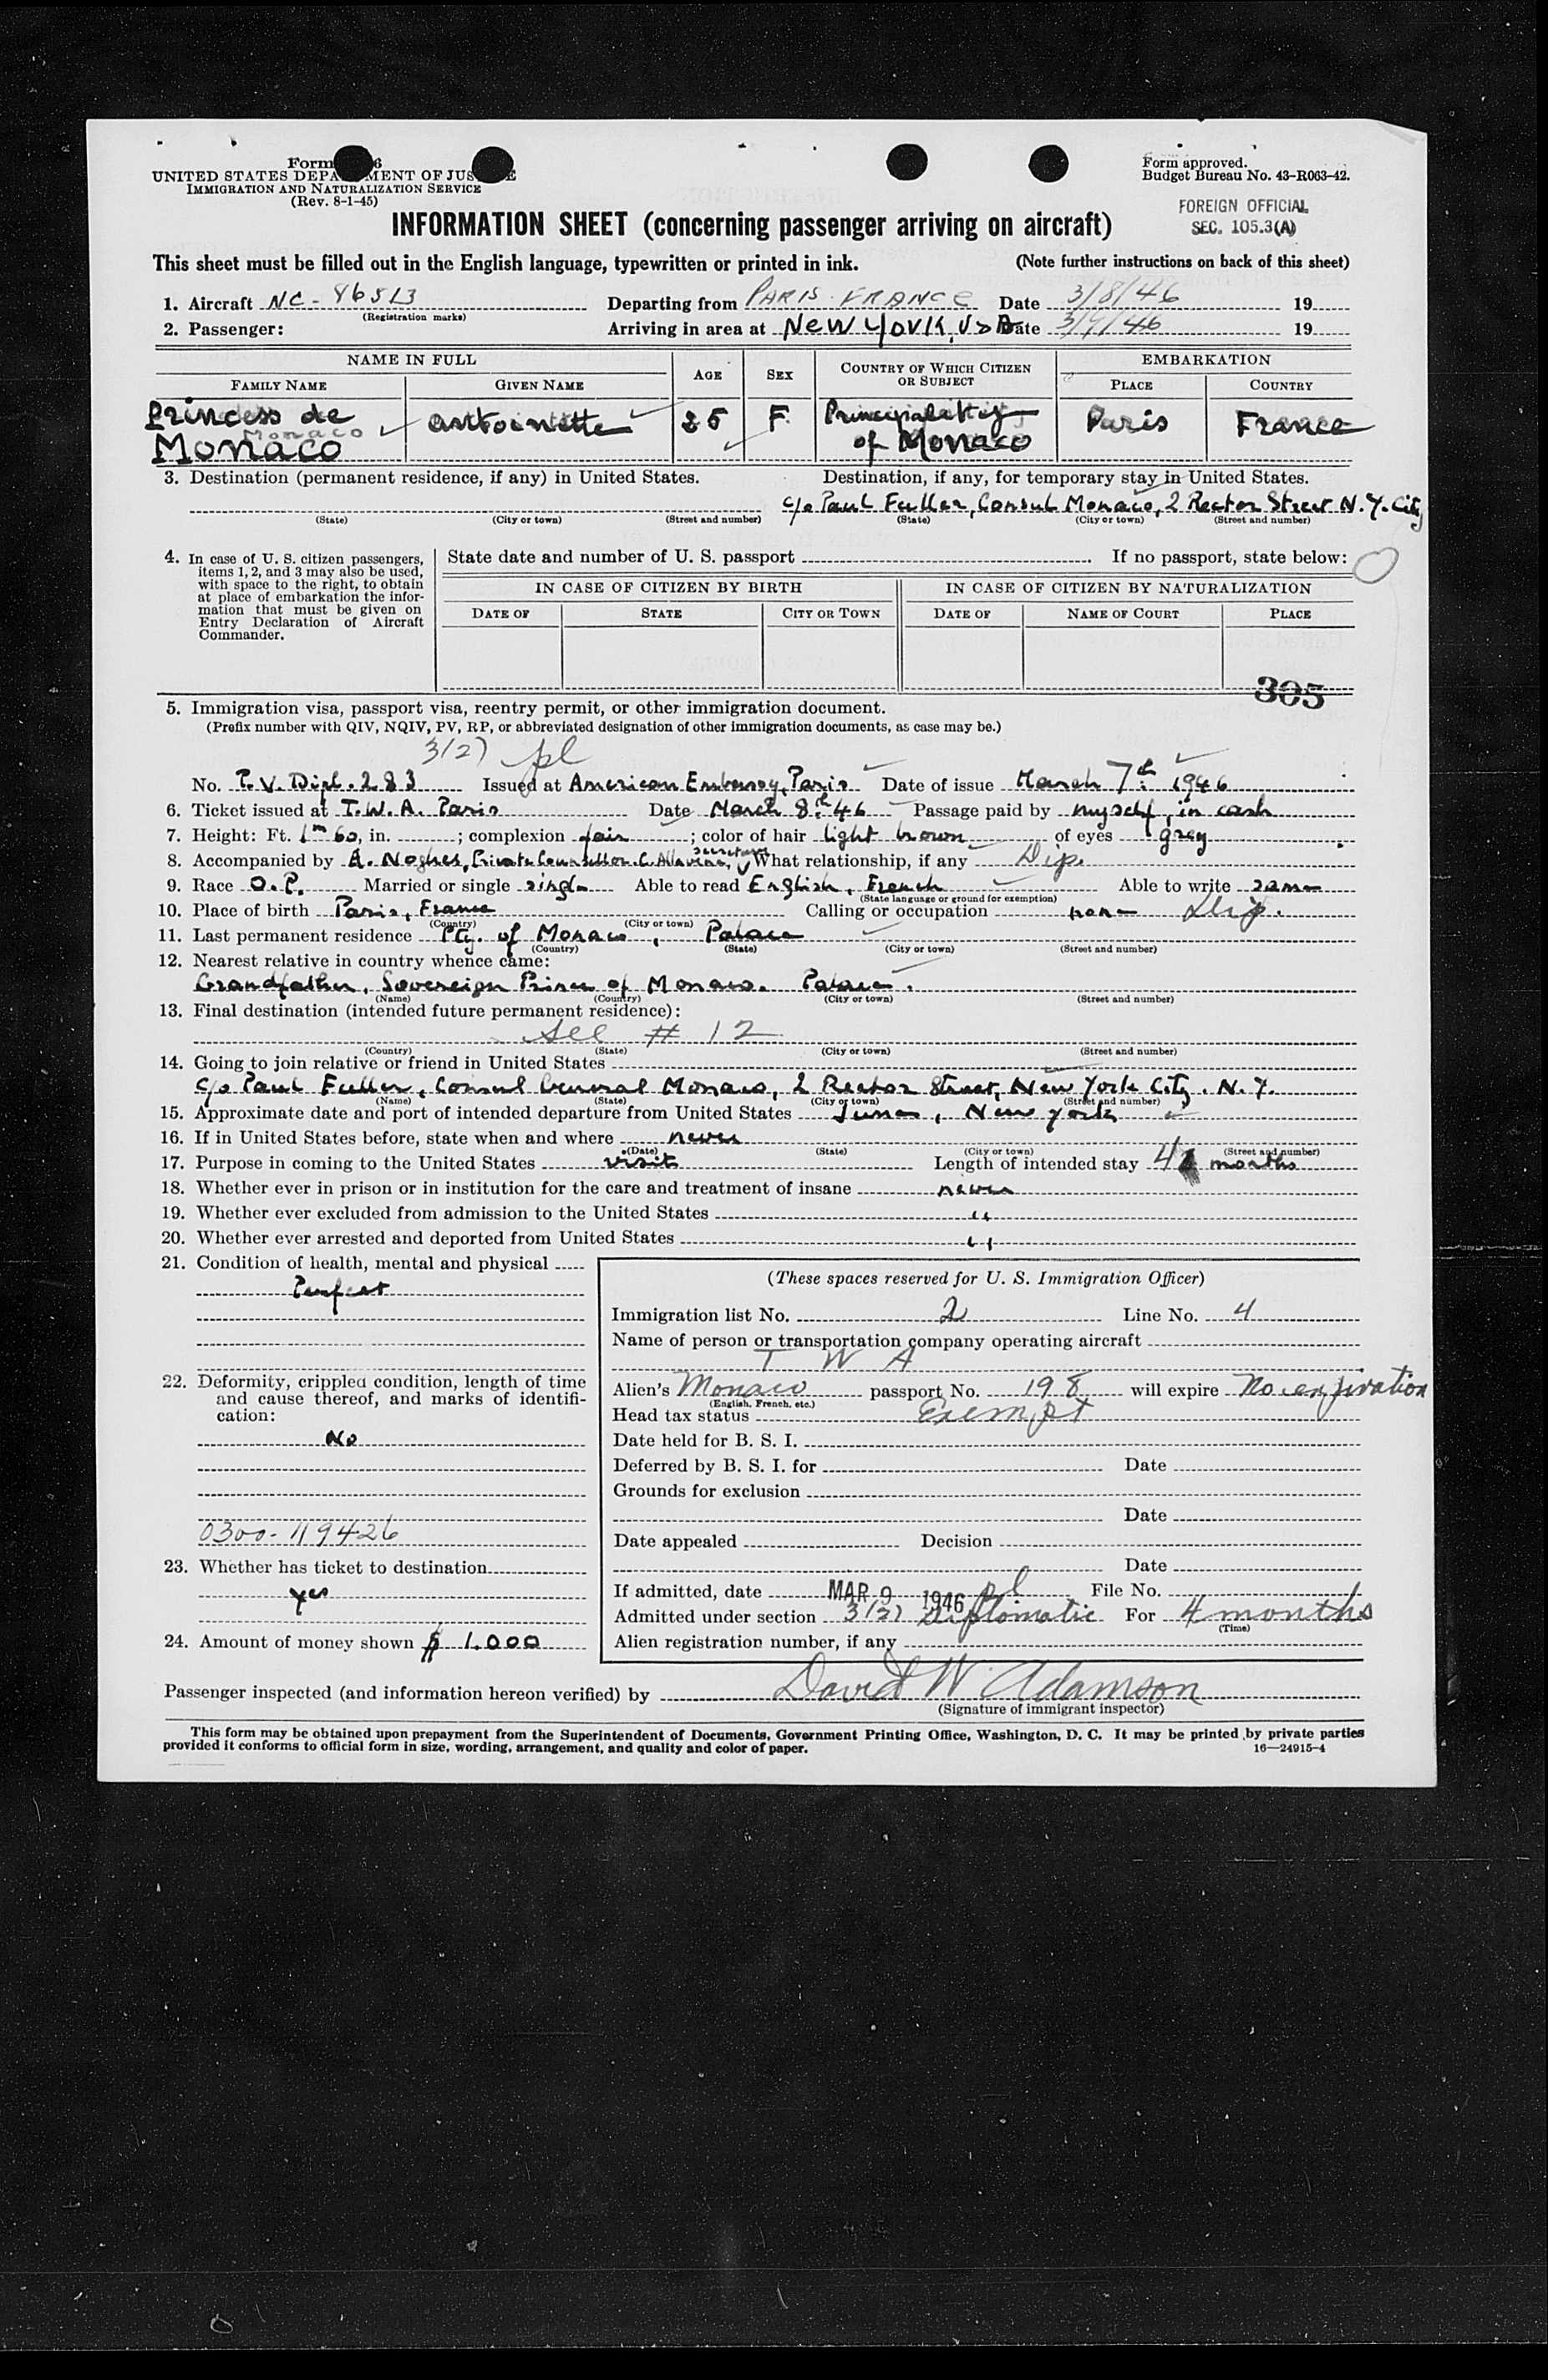 Form 6
UNITED STATES DEPA MENT OF JUS E
IMMIGRATION AND NATURALIZATION SERVICE
(Rev. 8-1-45)
Form approved.
Budget Bureau No. 43-R063-42.
FOREIGN OFFICIAL
SEC. 105.3(A)
INFORMATION SHEET (concerning passenger arriving on aircraft)
This sheet must be filled out in the English language, typewritten or printed in ink. (Note further instructions on back of this sheet)
1. Aircraft NC- 86513 Departing from PARIS FRANCE Date 3/8/46 19
(Registration marks)
2. Passenger: Arriving in area at New York, USA Date 3/9/46 19
NAME IN FULL AGE SEX COUNTRY OF WHICH CITIZEN OR SUBJECT EMBARKATION
FAMILY NAME GIVEN NAME PLACE COUNTRY
Princess de Monaco Monaco antoinette 25 F. Principality of Monaco Paris France
3. Destination (permanent residence, if any) in United States. Destination, if any, for temporary stay in United States.
c/o Paul Fuller, Consul Monaco, 2 Rector Street N.Y. City
(State) (City or town) (Street and number) (State) (City or town) (Street and number)
4. In case of U. S. citizen passengers, items 1, 2, and 3 may also be used, with space to the right, to obtain at place of embarkation the information that must be given on Entry Declaration of Aircraft Commander.
State date and number of U. S. passport . If no passport, state below:
IN CASE OF CITIZEN BY BIRTH IN CASE OF CITIZEN BY NATURALIZATION
DATE OF STATE CITY OR TOWN DATE OF NAME OF COURT PLACE
305
5. Immigration visa, passport visa, reentry permit, or other immigration document.
(Prefix number with QIV, NQIV, PV, RP, or abbreviated designation of other immigration documents, as case may be.)
3(2) pl
No. P.V. Dipl. 283 Issued at American Embassy, Paris Date of issue March 7th 1946
6. Ticket issued at T.W.A. Paris Date March 8th 46 Passage paid by myself, in cash
7. Height: Ft. 1m 60, in. ; complexion fair ; color of hair light brown of eyes grey
8. Accompanied by A. Noghes, Private Counsellor. C. secretary What relationship, if any Dip.
9. Race O.P. Married or single single Able to read English, French Able to write same
(State language or ground for exemption)
10. Place of birth Paris, France Calling or occupation none Dip.
(Country) (City or town)
11. Last permanent residence Pty. of Monaco, Palace
(Country) (State) (City or town) (Street and number)
12. Nearest relative in country whence came:
Grandfather, Sovereign Prince of Monaco. Palace.
(Name) (Country) (City or town) (Street and number)
13. Final destination (intended future permanent residence):
See # 12
(Country) (State) (City or town) (Street and number)
14. Going to join relative or friend in United States
c/o Paul Fuller, Consul General Monaco, 2 Rector Street, New York City. N.Y.
(Name) (State) (City or town) (Street and number)
15. Approximate date and port of intended departure from United States June, New York
16. If in United States before, state when and where never
(Date) (State) (City or town) (Street and number)
17. Purpose in coming to the United States visit Length of intended stay 4 months
18. Whether ever in prison or in institution for the care and treatment of insane never
19. Whether ever excluded from admission to the United States "
20. Whether ever arrested and deported from United States "
21. Condition of health, mental and physical
Perfect
22. Deformity, crippled condition, length of time and cause thereof, and marks of identification:
No
0300-119426
23. Whether has ticket to destination
yes
24. Amount of money shown $ 1.000
(These spaces reserved for U. S. Immigration Officer)
Immigration list No. 2 Line No. 4
Name of person or transportation company operating aircraft
T W A
Alien's Monaco passport No. 198 will expire No expiration
(English, French, etc.)
Head tax status Exempt
Date held for B. S. I.
Deferred by B. S. I. for Date
Grounds for exclusion
Date
Date appealed Decision
Date
If admitted, date MAR 9 1946 pl File No.
Admitted under section 3(2) Diplomatic For 4 months
(Time)
Alien registration number, if any
Passenger inspected (and information hereon verified) by David W. Adamson
(Signature of immigrant inspector)
This form may be obtained upon prepayment from the Superintendent of Documents, Government Printing Office, Washington, D. C. It may be printed by private parties
provided it conforms to official form in size, wording, arrangement, and quality and color of paper. 16—24915-4